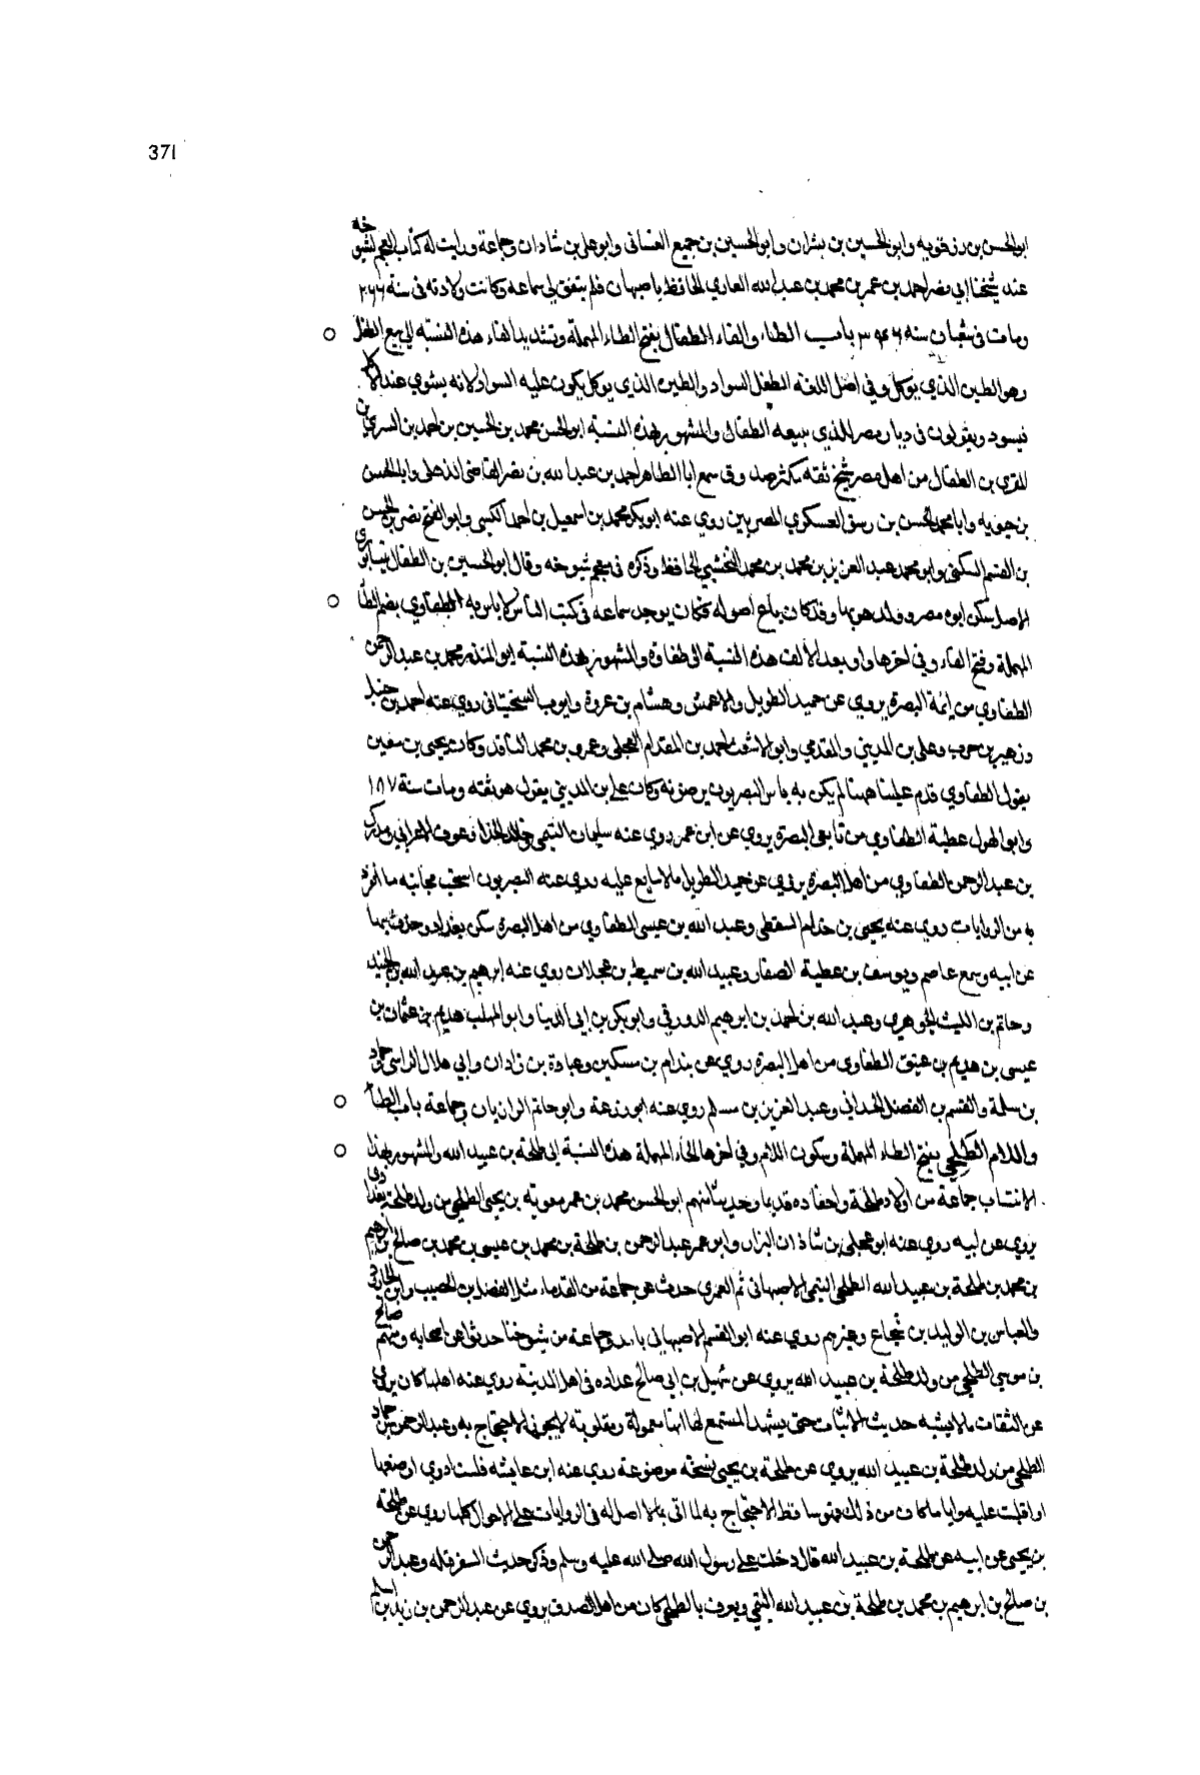 371
ابو الحسن بن رزقويه وابو الحسين بن بشران وابو الحسين بن جميع الغسانى وابو على بن شاذان وجماعة ورايت له كتاب المعجم لشيوخه
عند شيخنا ابي نصر احمد بن عمر بن محمد بن عبد الله الغازي الحافظ باصبهان فلم يتفق لي سماعه وكانت ولادته فى سنة
ومات فى شعبان سنه باب الطاء والفاء الطفال بفتح الطاء المهملة وتشديد الفاء هذه النسبة الى بيع الطفل
وهو الطين الذي يوكل وفي اصل اللغة الطفل السواد والطين الذي يوكل يكون عليه السواد لانه يشوي عند الاكل
فيسود ويقولون فى ديار مصر للذي يبيعه الطفال والمشهور بهذه النسبة ابو الحسن محمد بن الحسين بن احمد بن السري بن
المقري بن الطفال من اهل مصر شيخ ثقه مكثر صدوق سمع ابا الطاهر احمد بن عبد الله بن نصر القاضى الذهلى وابا الحسن
بن حيويه وابا محمد الحسن بن رسق العسكري المصريين روي عنه ابو بكر محمد بن اسمعيل بن احمد وابو الفتح نصر بن الحسن
بن القسم وابو محمد عبد العزيز بن محمد بن محمد النخشبي الحافظ وذكره فى معجم شيوخه وقال ابو الحسين بن الطفال نيسابورى
الاصل سكن ابوه مصر وولد هو بها وقد كان باع اصوله فكان يوجد سماعه فى كتب الناس لا باس به الطفاوي بضم الطا
المهملة وفتح الفاء وفي اخرها واو بعد الالف هذه النسبة الى طفاوة والمشهور بهذه النسبة ابو المنذر محمد بن عبد الرحمن
الطفاوي من ايمة البصرة يروي عن حميد الطويل والاعمش وهشام بن عروة وايوب السختيانى روي عنه احمد بن حنبل
وزهير بن حرب وعلى بن المديني والمقدمي وابو الاشعث احمد بن المقدام العجلى وعمرو بن محمد الناقد وكان يحيى بن معين
يقول الطفاوي قدم علينا ههنا لم يكن به باس البصريون يرضونه وكان علي بن المديني يقول هو ثقه ومات سنة ١٨٧
وابو الهول عطية الطفاوي من تابعى البصرة يروي عن ابن عمر روي عنه سليمان التيمى وخالد الحذا وعوف الاعرابي ومدرك
بن عبد الرحمن الطفاوي من اهل البصرة يروي عن حميد الطويل ما لا يتابع عليه روي عنه البصريون استحب مجانبه ما انفرد
به من الروايات روي عنه يحيى بن خذام السقطى وعبد الله بن عيسى الطفاوي من اهل البصرة سكن بغداد وحدث بها
عن ابيه وسمع عاصم ويوسف بن عطية الصفار وعبيد الله بن سميط بن عجلان روي عنه ابرهيم بن عبد الله بن الجنيد
وحاتم بن الليث الجوهرى وعبد الله بن احمد بن ابرهيم الدورقي وابو بكر بن ابي الدنيا وابو المهلب هديم بن عثمان بن
عيسى بن هديم بن عنيق الطفاوى من اهل البصرة روي عن بندام بن مسكين وعبادة بن زادان وابي هلال الراسبى وحماد
بن سلمة والقسم بن الفضل الحدانى وعبد العزيز بن مسلم روي عنه ابو زرعة وابو حاتم الرازيان وجماعة باب الطا
واللام الطلحي بفتح الطاء المهملة وسكون اللام وفي اخرها الحاء المهملة هذه النسبة الى طلحة بن عبيد الله والمشهور بهذا
الانتساب جماعة من اولاد طلحة واحفاده قديما وحديثا منهم ابو الحسن محمد بن عمر معوية بن يحيى الطلحي من ولد طلحة بغدادى
يروي عن ابيه روي عنه ابو على بن شاذان البزاز وابو عمر عبد الرحمن بن طلحة بن محمد بن عيسى بن محمد بن صالح بن ابرهيم
بن محمد بن طلحة بن عبيد الله الطلحي التيمى الاصبهانى ثم العمرى حدث عن جماعة من القدماء مثل الفضل بن الخصيب وابن الجارود
والعباس بن الوليد بن شجاع وغيرهم روي عنه ابو القسم الاصبهانى وجماعة من شيوخنا حدثوا عن اصحابه ومنهم صالح
بن موسى الطلحي من ولد طلحة بن عبيد الله يروي عن سهيل بن ابي صالح عداده فى اهل المدينة روي عنه اهلها كان يروى
عن الثقات ما لا يشبه حديث الاثبات حتى يشهد المستمع لها انها معمولة ومقلوبة لا يجوز الاحتجاج به وعبد الرحمن بن حماد
الطلحي من ولد طلحة بن عبيد الله يروي عن طلحة بن يحيى نسخة موضوعة روي عنه ابن عايشه فلست ادري اوضعها
او اقلبت عليه وايا ما كان من ذلك فهو ساقط الاحتجاج به لما اتى بما لا اصل له فى الروايات على الاحوال كلها روي عن طلحة
بن يحيى عن ابيه عن طلحة بن عبيد الله قال دخلت على رسول الله صلى الله عليه وسلم وذكر حديث السفرجله وعبد الرحمن
بن صالح بن ابرهيم بن محمد بن طلحة بن عبيد الله التيمى ويعرف بالطلحي كان من اهل الصدق يروي عن عبد الرحمن بن زيد بن اسلم